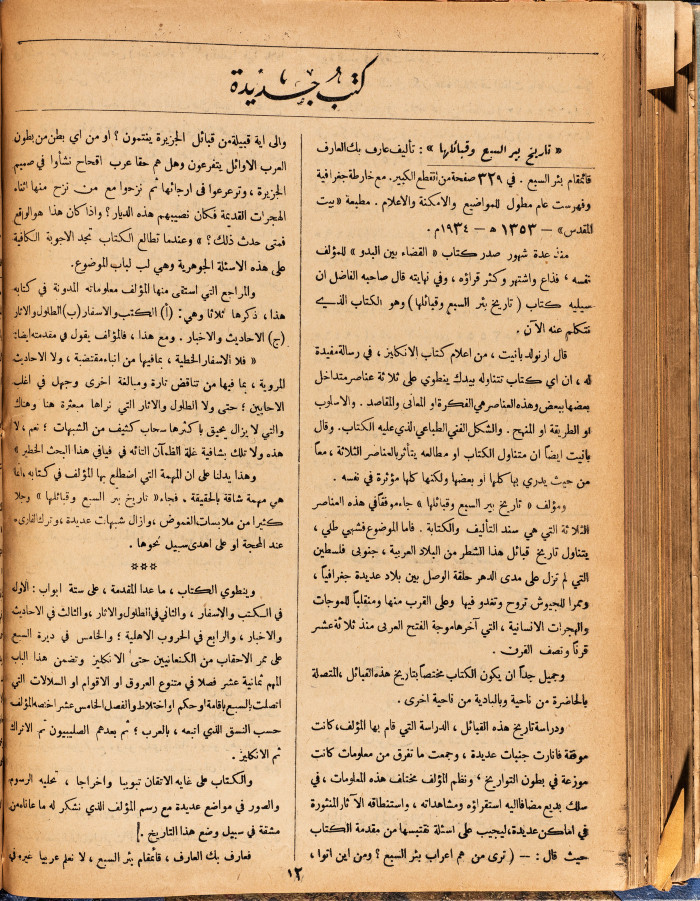 كتب جديدة
« تاريخ بير السبع وقبائلها » : تأليف عارف بك العارف
قائمقام بئر السبع . في ٣٢٩ صفحة من القطع الكبير. مع خارطة جغرافية
وفهرست عام مطول للمواضيع والامكنة والأعلام . مطبعة «بيت
المقدس» — ١٣٥٣ هـ - ١٩٣٤م.
منذ عدة شهور صدر كتاب « القضاء بين البدو » للمؤلف
نفسه ، فذاع واشتهر وكثر قراؤه ، وفي نهايته قال صاحبه الفاضل ان
سيليه كتاب ( تاريخ بئر السبع وقبائلها ) وهو الكتاب الذي
نتكلم عنه الآن .
قال ارنولد بانيت ، من اعلام كتاب الانكليز ، في رسالة مفيدة
له ، ان اي كتاب تتناوله بيدك ينطوي على ثلاثة عناصر متداخل
بعضها ببعض وهذه العناصر هي الفكرة او المعاني والمقاصد . والاسلوب
او الطريقة او المنهج . والشكل الفني الطباعي الذي عليه الكتاب. وقال
بانيت ايضاً ان متناول الكتاب او مطالعه يتأثر بالعناصر الثلاثة ، معاً
من حيث يدري بها كلها او بعضها ولكنها كلها مؤثرة في نفسه .
ومؤلف « تاريخ بير السبع وقبائلها » جاء موفقاً في هذه العناصر
الثلاثة التي هي سند التأليف والكتابة . فاما الموضوع فشهي طلي ،
يتناول تاريخ قبائل هذا الشطر من البلاد العربية ، جنوبي فلسطين
التي لم تزل على مدى الدهر حلقة الوصل بين بلاد عديدة جغرافياً ،
وممرا للجيوش تروح وتغدو فيها وعلى القرب منها ومنقلباً للموجات
والهجرات الانسانية ، التي آخرها موجة الفتح العربي منذ ثلاثة عشر
قرناً ونصف القرن .
وجميل جداً ان يكون الكتاب مختصاً بتاريخ هذه القبائل ،المتصلة
بالحاضرة من ناحية وبالبادية من ناحية اخرى .
ودراسة تاريخ هذه القبائل ، الدراسة التي قام بها المؤلف، كانت
موفقة فانارت جنبات عديدة ، وجمعت ما تفرق من معلومات كانت
موزعة في بطون التواريخ ، ونظم المؤلف مختلف هذه المعلومات ، في
سلك بديع مضافا اليه استقراؤه ومشاهداته ، واستنطاقه الآثار المنثورة
في اماكن عديدة، ليجيب على اسئلة نقتبسها من مقدمة الكتاب
حيث قال : — ( ترى من هم اعراب بئر السبع ؟ ومن اين اتوا ،
والى اية قبيلة من قبائل الجزيرة ينتمون ؟ او من اي بطن من بطون
العرب الاوائل يتفرعون وهل هم حقا عرب اقحاح نشأوا في صميم
الجزيرة ، وترعرعوا في ارجائها ثم نزحوا مع من نزح منها اثناء
الهجرات القديمة فكان نصيبهم هذه الديار ؟ واذا كان هذا هو الواقع
فمتى حدث ذلك ؟ » وعندما تطالع الكتاب تجد الاجوبة الكافية
على هذه الاسئلة الجوهرية وهي لب لباب الموضوع.
والمراجع التي استقى منها المؤلف معلوماته المدونة في كتابه
هذا ، ذكرها ثلاثا وهي: (أ) الكتب والاسفار (ب) الطلول والاثار
(ج) الاحاديث والاخبار . ومع هذا ، فالمؤلف يقول في مقدمته ايضا:
« فلا الاسفار الخطية ، بما فيها من انباء مقتضبة ، ولا الاحاديث
المروية ، بما فيها من تناقض تارة ومبالغة اخرى وجهل في اغلب
الاحايين ؛ حتى ولا الطلول والاثار التي نراها مبعثرة هنا وهناك
والتي لا يزال يحيق باكثرها سحاب كثيف من الشبهات ؛ نعم ، لا
هذه ولا تلك بشافية غلة الظمآن التائه في فيافي هذا البحث الخطير »
وهذا يدلنا على ان المهمة التي اضطلع بها المؤلف في كتابه ، انما
هي مهمة شاقة بالحقيقة . فجاء « تاريخ بئر السبع وقبائلها » وجلا
كثيرا من ملابسات الغموض ، وازال شبهات عديدة ، وترك القارىء
عند المحجة او على اهدى سبيل نحوها .
***
وينطوي الكتاب ، ما عدا المقدمة ، على ستة ابواب : الاول
في الكتب والاسفار ، والثاني في الطلول والاثار ، والثالث في الاحاديث
والاخبار ، والرابع في الحروب الاهلية ؛ والخامس في ديرة السبع
على ممر الاحقاب من الكنعانيين حتى الانكليز وتضمن هذا الباب
المهم ثمانية عشر فصلا في متنوع العروق او الاقوام او السلالات التي
اتصلت بالسبع باقامة او حكم او اختلاط والفصل الخامس عشر اختصه المؤلف
حسب النسق الذي اتبعه ، بالعرب ؛ ثم بعدهم الصليبيون ثم الاتراك
ثم الانكليز .
والكتاب على غايه الاتقان تبويبا واخراجا ، تحليه الرسوم
والصور في مواضع عديدة مع رسم المؤلف الذي نشكر له ما عاناه من
مشقة في سبيل وضع هذا التاريخ .
فعارف بك العارف ، قائمقام بئر السبع ، لا نعلم عربيا غيره في
١٢